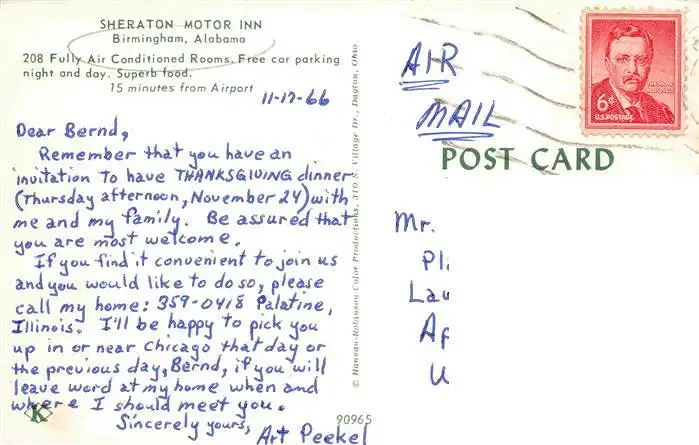 SHERATON MOTOR INN
Birmingham, Alabama
208 Fully Air Conditioned Rooms. Free car parking
night and day. Superb food.
15 minutes from Airport
11-17-66
Dear Bernd,
Remember that you have an
invitation to have THANKSGIVING dinner
(Thursday afternoon, November 24) with
me and my family. Be assured that
you are most welcome.
If you find it convenient to join us
and you would like to do so, please
call my home: 359-0418 Palatine,
Illinois. I'll be happy to pick you
up in or near Chicago that day or
the previous day, Bernd, if you will
leave word at my home when and
where I should meet you.
Sincerely yours,
Art Peekel
K
90965
© Hannau-Robinson Color Productions, 310 S. Village Dr., Dayton, Ohio
AIR
MAIL
6¢
U.S. POSTAGE
POST CARD
Mr.
Pl
Lau
Ap
U